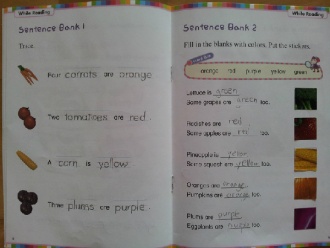 While Reading
Sentence Bank 1
Trace.
Four carrots are orange.
Two tomatoes are red.
A corn is yellow.
Three plums are purple.
While Reading
Sentence Bank 2
Fill in the blanks with colors. Put the stickers.
orange red purple yellow green
Lettuce is green.
Some grapes are green too.
Radishes are red
Some apples are red too.
Pineapple is yellow
Some squash are yellow too.
Oranges are orange.
Pumpkins are orange too.
Plums are purple
Eggplants are purple too.